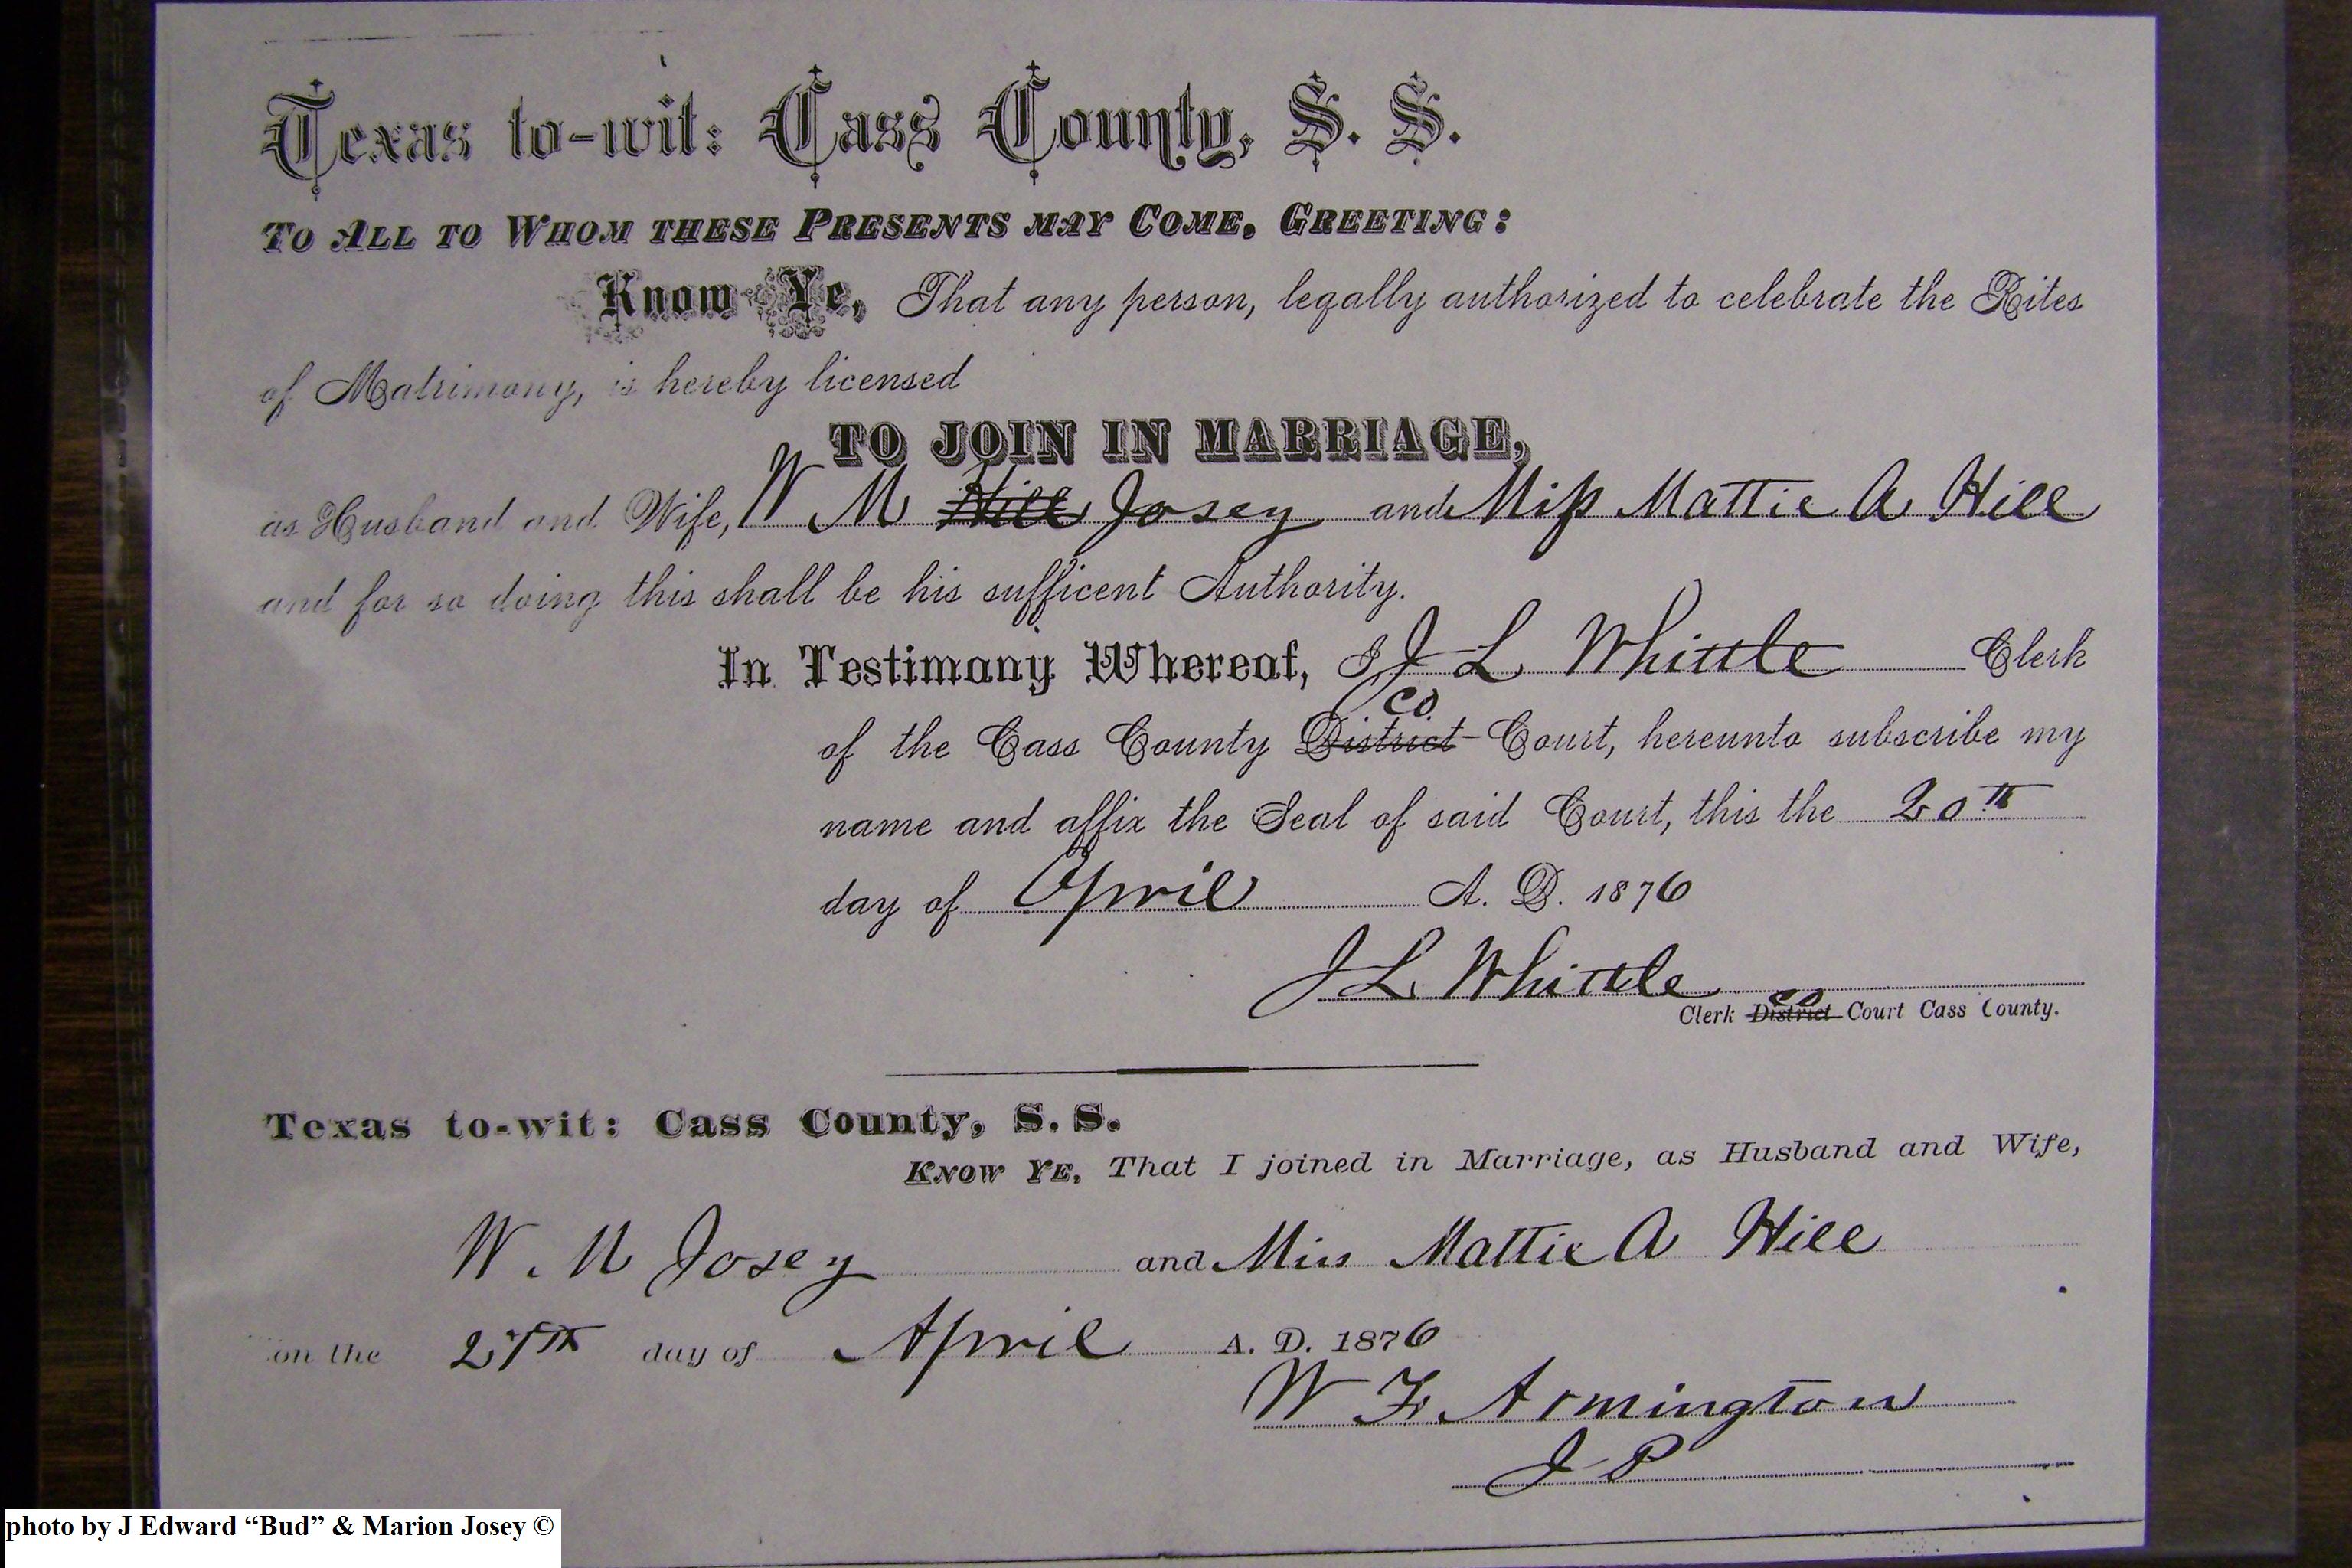 Texas to-wit: Cass County, S. S.
To All to Whom these Presents may Come, Greeting:
Know Ye, That any person, legally authorized to celebrate the Rites
of Matrimony, is hereby licensed
TO JOIN IN MARRIAGE,
as Husband and Wife, W M Hill Josey and Miss Mattie A Hill
and for so doing this shall be his sufficent Authority.
In Testimony Whereof, I J L Whittle Clerk
co
of the Cass County District Court, hereunto subscribe my
name and affix the Seal of said Court, this the 20th
day of April A. D. 1876
J L Whittle
co
Clerk District Court Cass County.
Texas to-wit: Cass County, S. S.
Know Ye, That I joined in Marriage, as Husband and Wife,
W. M Josey and Miss Mattie A Hill
on the 27th day of April A. D. 1876
W F Armington
J P
photo by J Edward “Bud” & Marion Josey ©